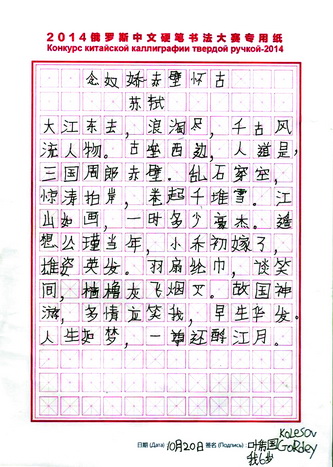 2014俄罗斯中文硬笔书法大赛专用纸
Конкурс китайской каллиграфии твердой ручкой-2014
念奴娇赤壁怀古
苏轼
大江东去,浪淘尽,千古风
流人物。古垒西边,人道是,
三国周郎赤壁。乱石穿空,
惊涛拍岸,卷起千堆雪。江
山如画,一时多少豪杰。遥
想公瑾当年,小乔初嫁了,
雄姿英发。羽扇纶巾,谈笑
间,樯橹灰飞烟灭。故国神
游,多情应笑我,早生华发。
人生如梦,一尊还酹江月。
日期 (Дата) 10月20日 签名 (Подпись) 叶 国
Kolesov
Gordey
我6岁